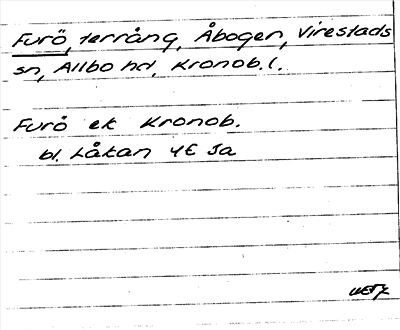 Furö, terräng, Åbogen, Virestads
sn, Allbo hd, Kronob. l.
Furö ek Kronob.
bl. Låkan 4E Ja